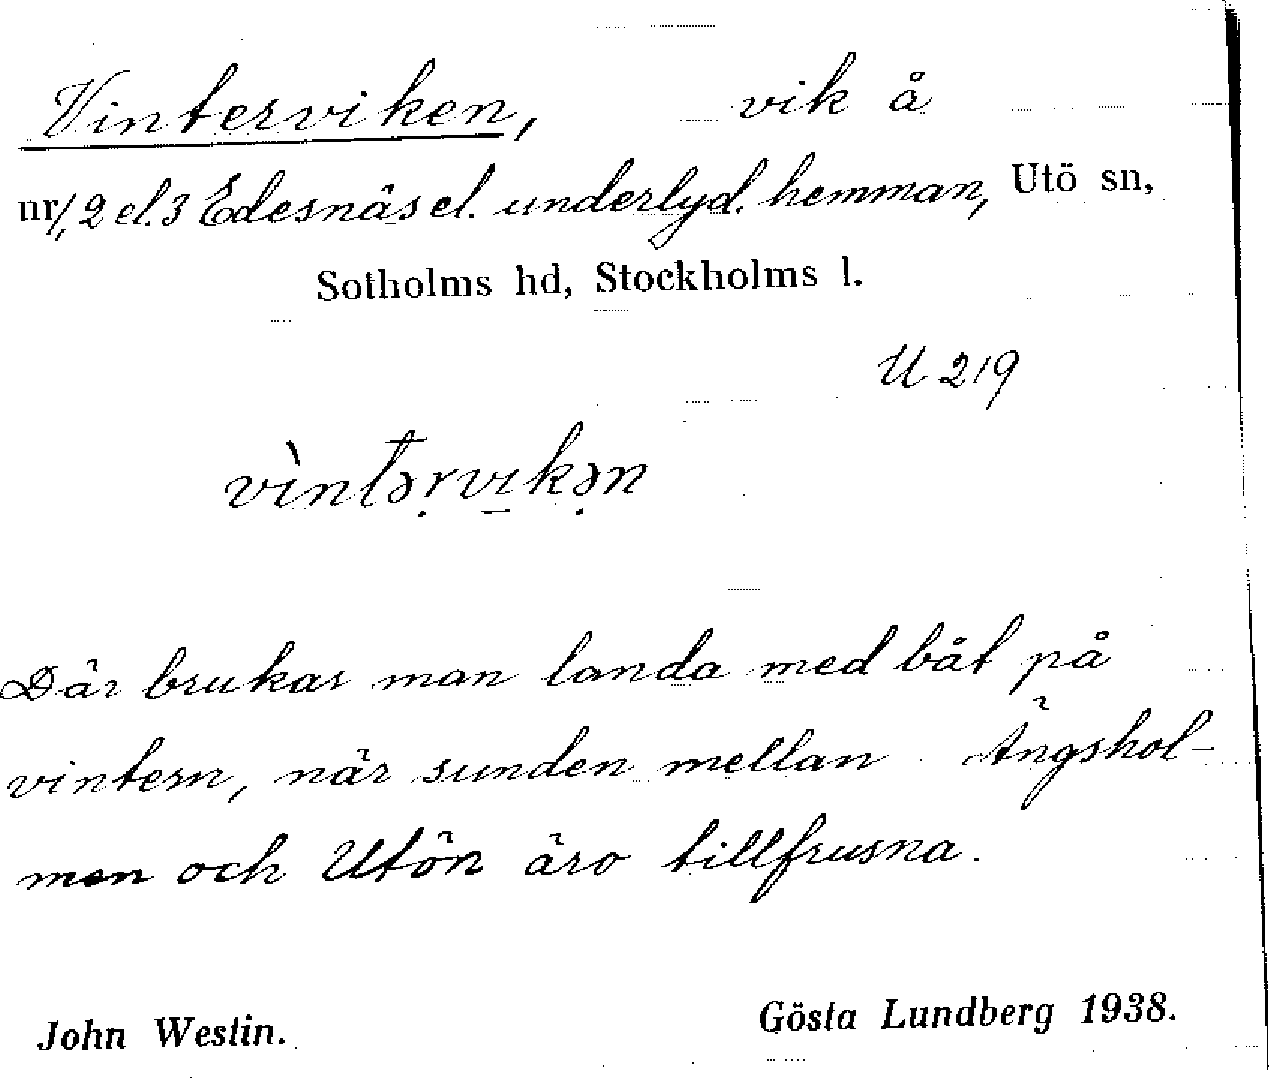 Vinterviken, vik å
nr 1, 2 el. 3 Edesnäs el. underlyd. hemman, Utö sn,
Sotholms hd, Stockholms l.
U 219
vìntər̥vɪkən
Där brukar man landa med båt på
vintern, när sunden mellan Ängshol-
men och Utön äro tillfrusna.
John Westin. Gösta Lundberg 1938.